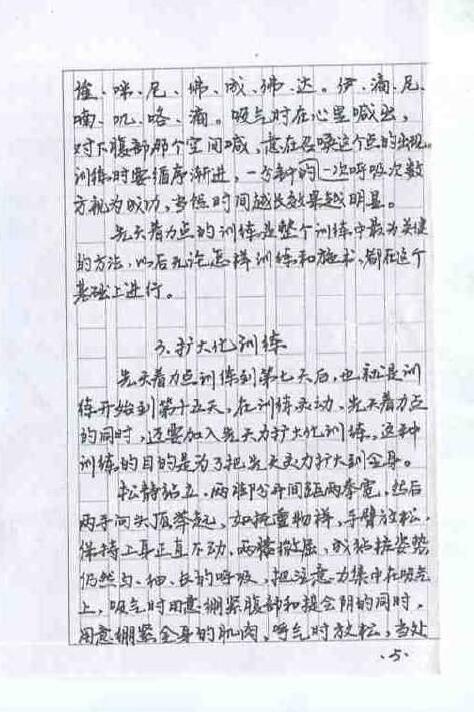 谁、咪、尼、拂、成、拂、达。伊、滴、尼、
喃、叽、咯、滴。吸气时在心里喊出,
对下腹部那个空间喊,意在召唤这个点的出现。
训练时要循序渐进,一分钟的一次呼吸次数
方视为成功,当然时间越长效果越明显。
先天着力点的训练是整个训练中最为关键
的方法,以后无论怎样训练和施术,都在这个
基础上进行。
3、扩大化训练
先天着力点训练到第七天后,也就是训
练开始到第十五天,在训练灵动、先天着力点
的同时,还要加入先天力扩大化训练。这种
训练的目的是为了把先天灵力扩大到全身。
松静站立,两脚分开间距两拳宽,然后
两手向头顶举起,如托重物样,手臂放松,
保持上身正直不动,两膝微屈,成站桩姿势
仍然匀、细、长的呼吸,把注意力集中在吸气
上,吸气时用意绷紧腹部和提会阴的同时,
用意绷紧全身的肌肉,呼气时放松,当处
·5·